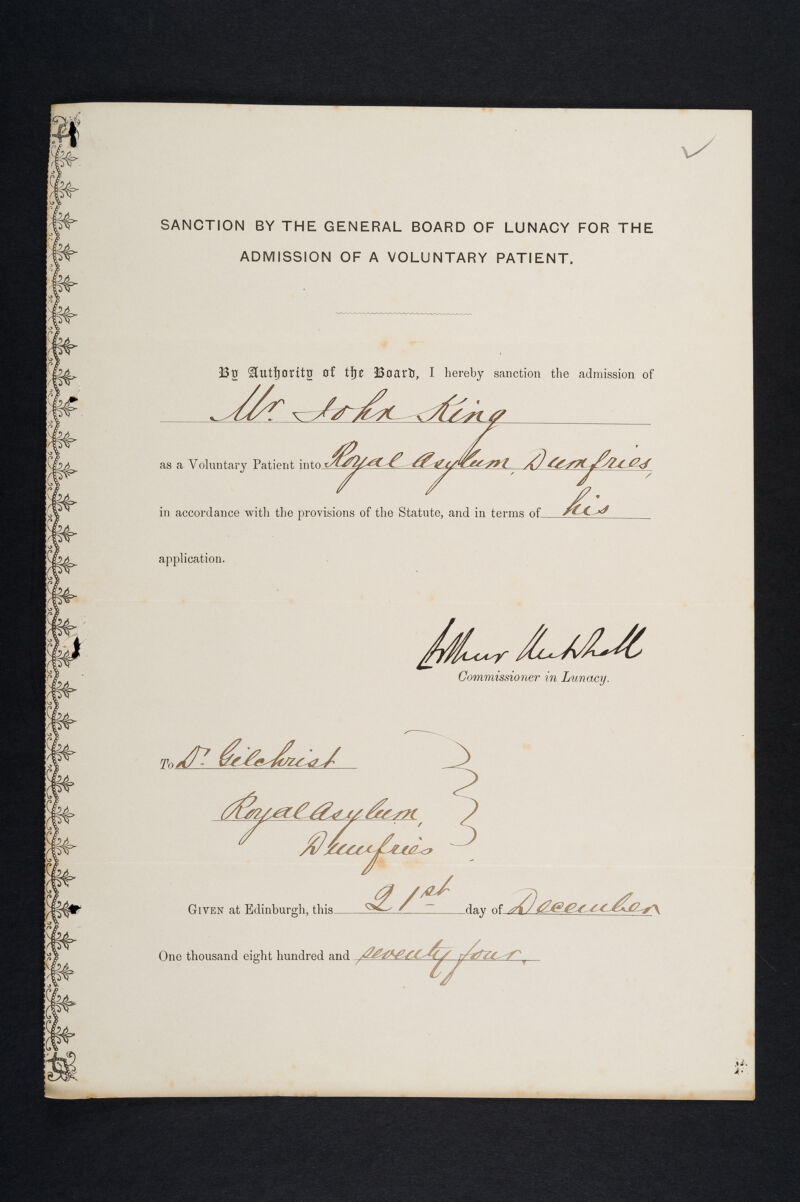 SANCTION BY THE GENERAL BOARD OF LUNACY FOR THE
ADMISSION OF A VOLUNTARY PATIENT.
By Authority of the Board, I hereby sanction the admission of
Mr. John King
as a Voluntary Patient into Royal Asylum, Dumfries,
in accordance with the provisions of the Statute, and in terms of his
application.
Arthur Mitchell
Commissioner in Lunacy.
To Dr. Gilchrist
Royal Asylum,
Dumfries
GIVEN at Edinburgh, this 21st day of December
One thousand eight hundred and seventy four.